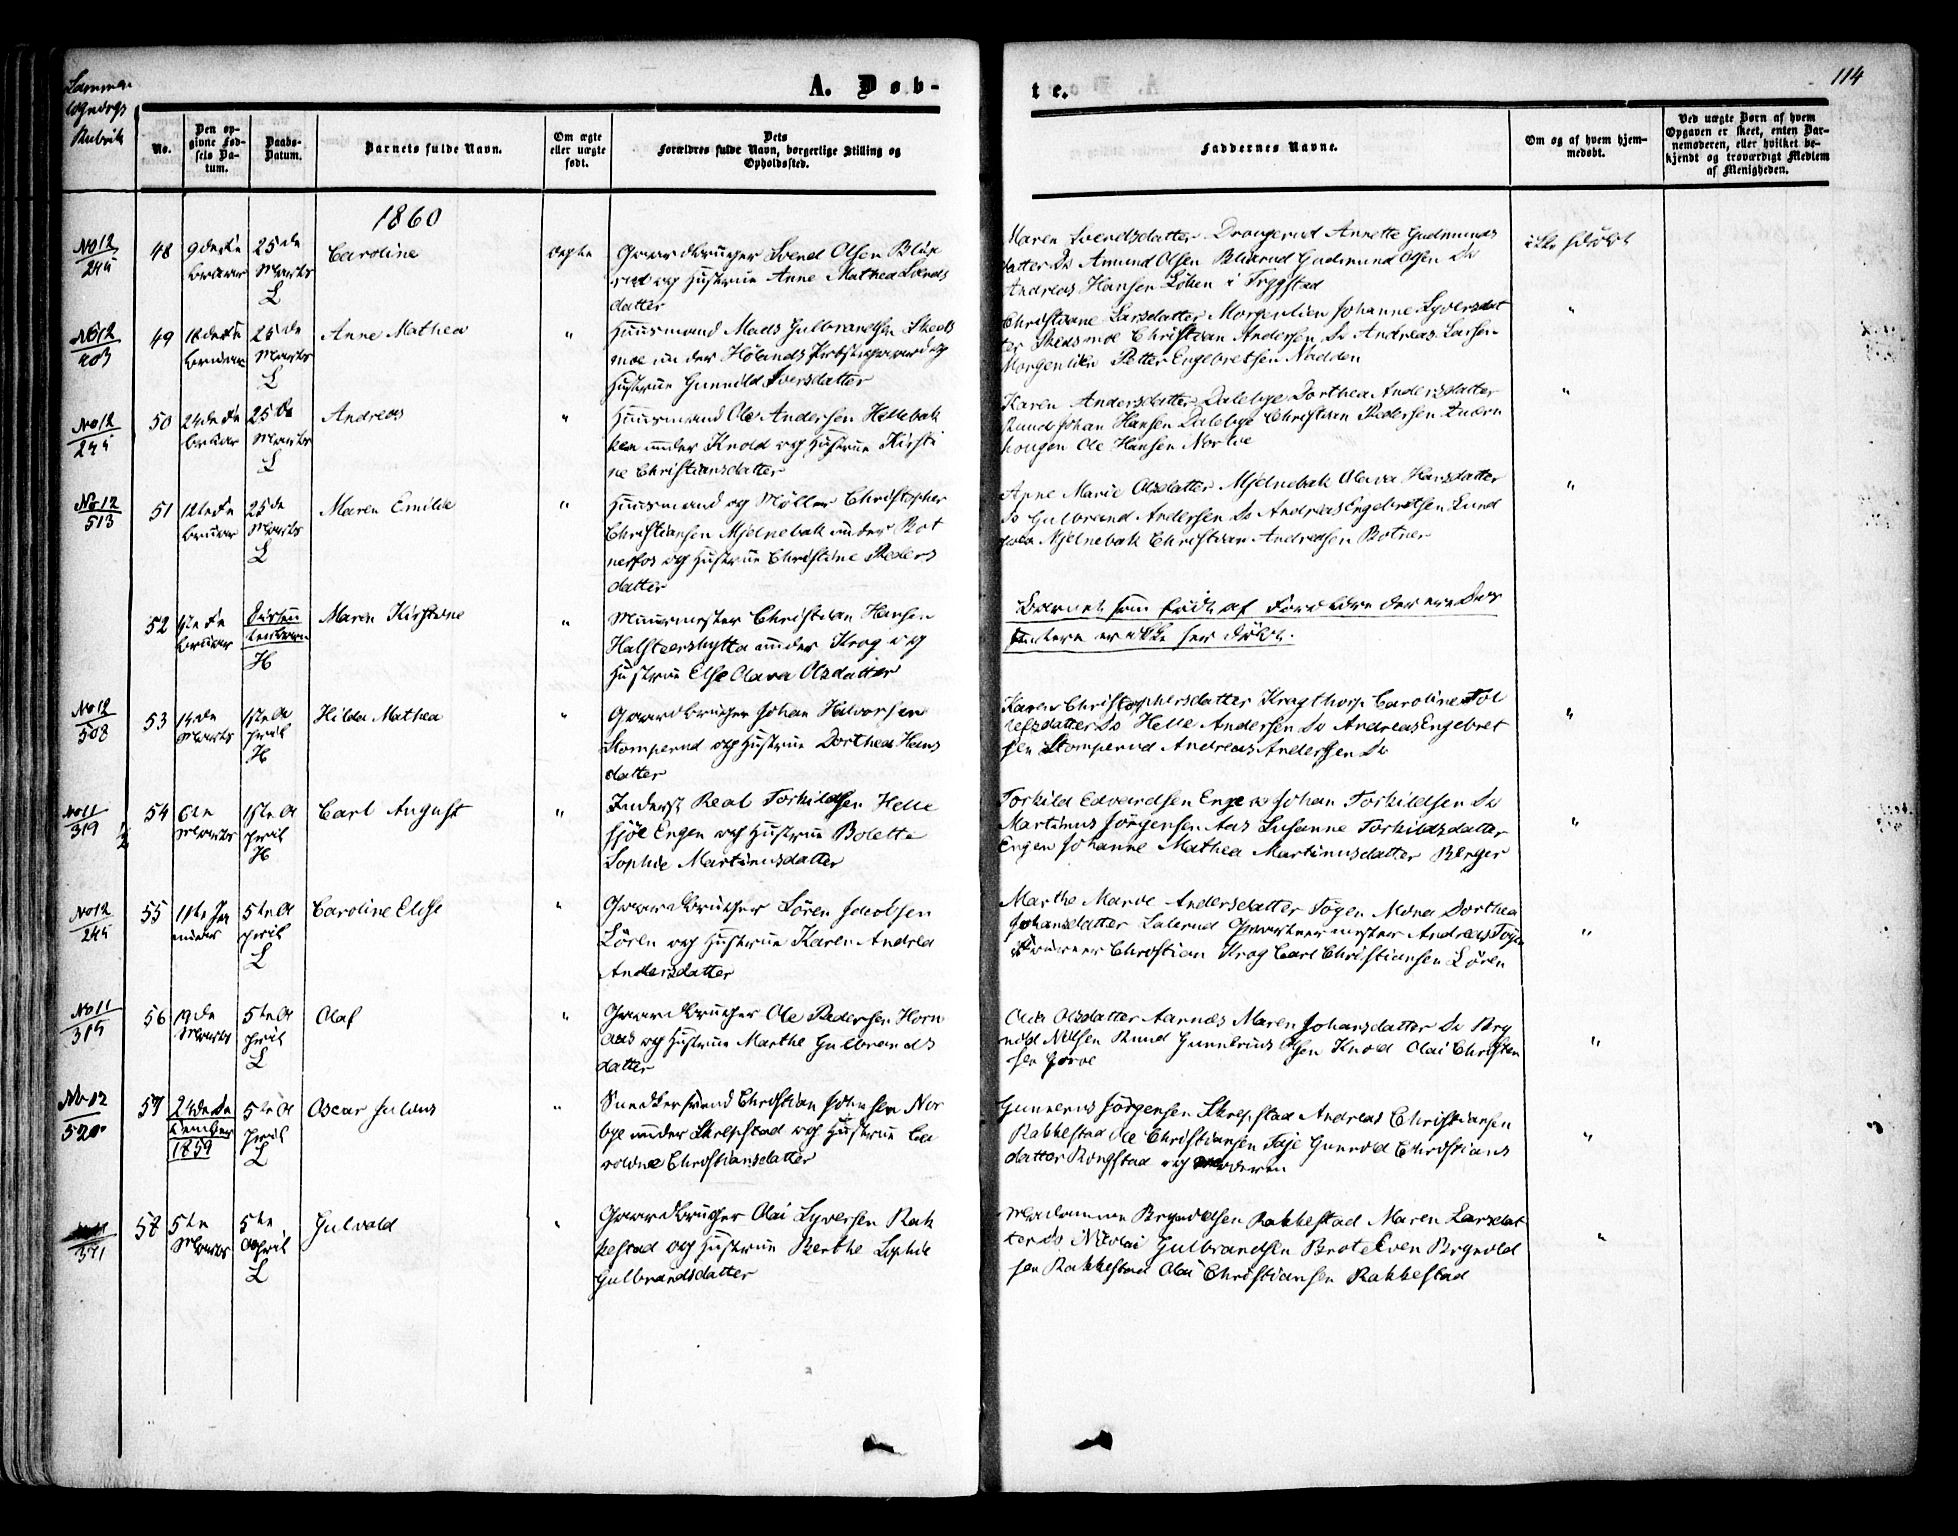 114
A. Døb-
te.
Sammen
No.
Den op-
givne Fød-
sels Da-
tum.
Daabs-
Datum.
Barnets fulde Navn.
Om ægte
eller uægte
født.
Dets
Forældres fulde Navn, borgerlige Stilling og
Opholdssted.
Faddernes Navne.
Om og af hvem hjem-
medøbt.
Ved uægte Børn af hvem
Opgaven er skeet, enten Bar-
nemoderen, eller hvilket be-
kjendt og troværdigt Medlem
af Menigheden.
1860
No 12
48
9de Fe
bruar
25de
Marts
L
Caroline
ægte
Gaardbruger Svend Olsen Blix
rud og Hustrue Anne Mathea Svends
datter
Maren Svendsdatter Drangerud Annette Gudmunds
datter Do Amund Olsen Blixrud Gudmund Olsen Do
Andreas Hansen Löken i Trygstad
ikke hdøbt
No 12
49
Fe
bruar
25de
Marts
L
Anne Mathea
"
Huusmand Mads Gulbrandsen Skeds
moe under Hölands Præstegaard og
Hustrue Gunnild Iversdatter
Christiane Larsdatter Morgenlien Johanne Syversdat
ter Skedsmoe Christian Andersen Do Andreas Larsen
Morgenlien Petter Engebretsen Nadden
"
No 12
50
24de Fe
bruar
25de
Marts
L
Andreas
"
Huusmand Ole Andersen Hellebæk
ken under Knold og Hustrue Kirsti
ne Christiansdatter
Karen Andersdatter Dalebye Dorthea Andersdatter
Ruud Johan Hansen Dalebye Christian Pedersen
hougen Ole Hansen
"
No 12
513
51
12te Fe
bruar
25de
Marts
L
Maren Emilie
"
Huusmand og Möller Christopher
Christiansen Mjelnebæk under Bot
nerfos og Hustrue Christine Peders
datter
Anne Marie Olsdatter Mjelnebæk Olava Hansdatter
Do Gulbrand Andersen Do Andreas Engebretsen Lund
Mjelnebæk Christian Andersen Botner
"
52
Fe
bruar
H
Maren Kirstine
"
Muurmester Christian Hansen
Halsteenshytta under Krog og
Hustrue Else Olava Olsdatter
Barnet som født af Forældre der ere Dis
sentere er ikke her døbt.
No 12
508
53
14de
Marts
1ste A
pril
H
Hilda Mathea
"
Gaardbruger Johan Halvorsen
Stomperud og Hustrue Dorthea Hans
datter
Karen Christophersdatter Kragthorp Caroline Tol
lefsdatter Do Helle Andersen Do Andreas Engebret
sen Stomperud Andreas Andersen Do
"
No 11
319
54
6te
Marts
1ste A
pril
H
Carl August
"
Inderst Real Torkildsen Helle
sjöe Engen og Hustrue Bolette
Sophie Martinusdatter
Torkild Edvardsen Enge og Johan Torkildsen Do
Martinus Jörgensen Aas Susanne Torkildsdatter
Engen Johanne Mathea Martinusdatter Berger
"
No 12
55
11te Ja
nuar
5te A
pril
L
Caroline Elise
"
Gaardbruger Sören Jacobsen
Lören og Hustrue Karen Andrea
Andersdatter
Marthe Marie Andersdatter Togen Maren Dorthea
Johansdatter Lalerud Qvarteermester Andreas Togen
Christian Krog Carl Christiansen Lören
"
No 11
56
19de
Marts
5te A
pril
L
Olaf
"
Gaardbruger Ole Pedersen Horn
aas og Hustrue Marthe Gulbrands
datter
Olea Olsdatter Aarnæs Maren Johansdatter Do Bry
nild Nilsen Ruud Gunnerius Olsen Knold Olai Christen
sen
"
No 12
520
57
24de De
cember
1859
5te A
pril
L
Oscar Julius
"
Snedkersvend Christian Johnsen Nor
bye under Skrepstad og Hustrue Ca
roline Christiansdatter
Gunnerus Jörgensen Skrepstad Andreas Christiansen
Rakkestad Ole Christiansen Gunnild Christians
datter Rongstad og Moderen
"
57
5te
Marts
5te
April
L
Gulvald
"
Gaardbruger Olai Syversen Rak
kestad og Hustrue Berthe Sophie
Gulbrandsdatter
Madamme Brynildsen Rakkestad Maren Larsdat
ter Do Nicolai Gulbrandsen Brote Even Brynild
sen Rakkestad Olai Christiansen Rakkestad
"